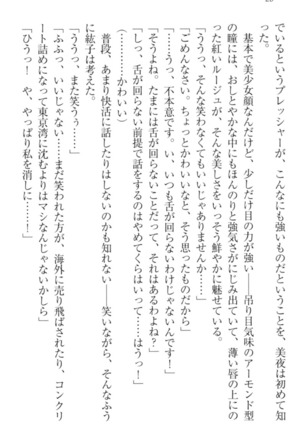 20
でいるというプレッシャーが、こんなにも強いものだということを、美夜は初めて知
った。
基本で美少女顔なんだけど、少しだけ目の力が強い――吊り目気味のアーモンド型
の瞳には、おしとやかな中にもほんのりと強気さがにじみ出ていて、薄い唇の上にの
った紅いルージュが、そんな美しさをいっそう鮮やかに魅せている。
「ううっ、そんな笑わなくてもいいじゃありませんか……」
「ごめんなさい。ちょっとかわいいなと、そう思ったものだから」
「ううっ、不本意です。い、いつも舌が回らないわけじゃないんです！」
「そうよね。たまには舌が回らないことだって、それはあるわよね？」
「しっ、舌が回らない前提で話をするのはやめてくらはいって――はうっ！」
（……かわいい）
普段、あまり快活に話したりはしないのかも知れない――笑いながら、そんなふう
に絃子は考えた。
「ううっ、また笑うぅ……」
「ふふっ、いいじゃない……まだ笑われた方が、海外に売り飛ばされたり、コンクリ
ート詰めになって東京湾に沈むよりはマシなんじゃないかしら」
「ひうっ！　や、やっぱり私を消しに……！」